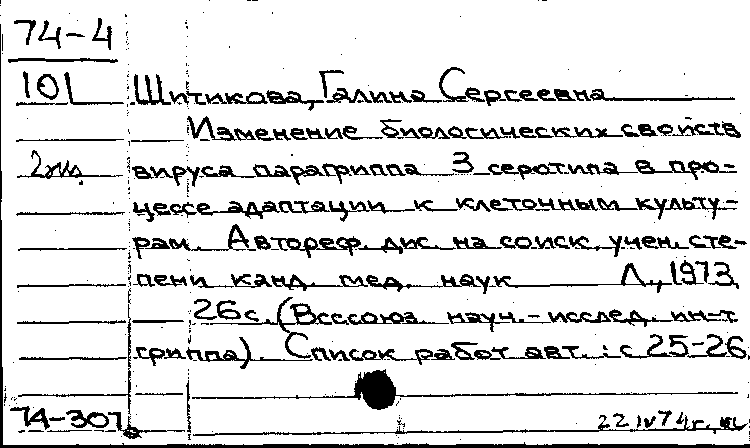 74-4
101 Шитикова, Галина Сергеевна
Изменение биологических свойств
2 экз. вируса парагриппа 3 серотипа в про-
цессе адаптации к клеточным культу-
рам. Автореф. дис. на соиск. учен. сте-
пени канд. мед. наук Л., 1973.
26 с. (Всесоюз. науч.-исслед. ин-т
гриппа). Список работ авт.: с 25-26.
74-307
22 IV 74г.